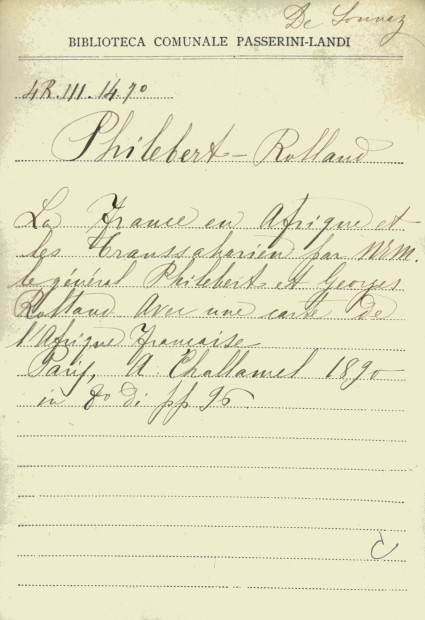 De Sonnaz
BIBLIOTECA COMUNALE PASSERINI-LANDI
4R.III.14.70
Philebert - Rolland
La France en Afrique et
les transsaharien par MM.
le général Philebert et Georges
Rolland Avec une carte de
l'Afrique Française
Paris, A Challamel 1890
in 8o di pp 96.
C